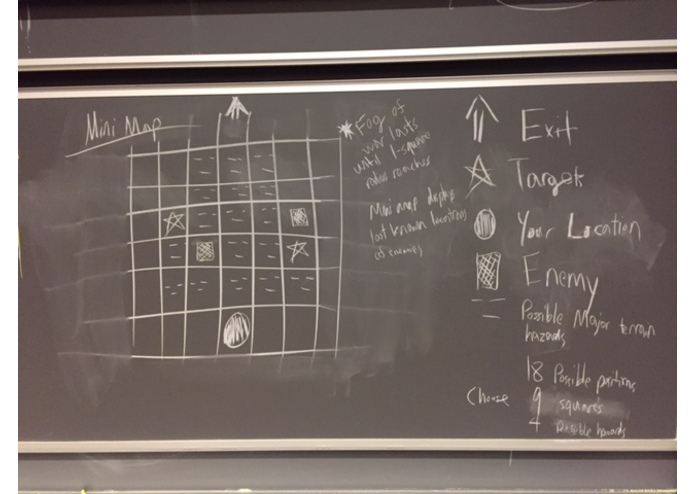 Mini Map
Fog of
war lasts
until 1-square
radius
Mini map display
last known locations
of enemies
Exit
Target
Your Location
Enemy
Possible Major terrain
hazards
18 Possible positions
Choose 9 squares
4 possible hazards